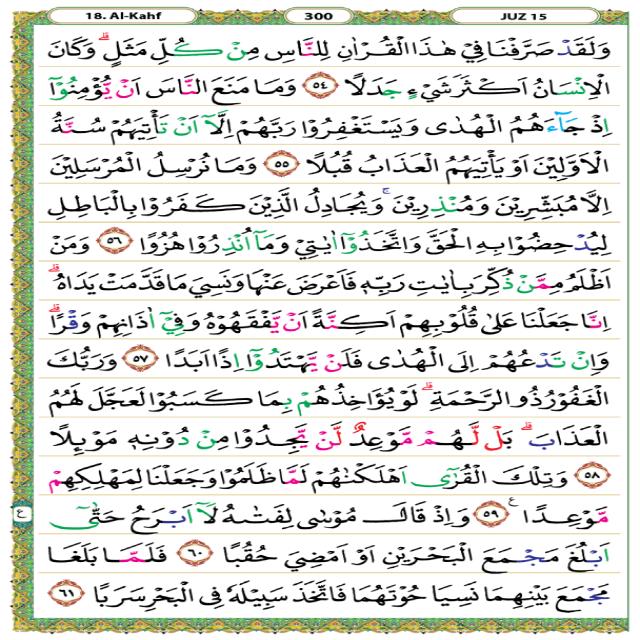 18. Al-Kahf
300
JUZ 15
وَلَقَدْ صَرَّفْنَا فِيْ هٰذَا الْقُرْاٰنِ لِلنَّاسِ مِنْ كُلِّ مَثَلٍۗ وَكَانَ
الْاِنْسَانُ اَكْثَرَ شَيْءٍ جَدَلًا ٥٤ وَمَا مَنَعَ النَّاسَ اَنْ يُّؤْمِنُوْٓا
اِذْ جَاۤءَهُمُ الْهُدٰى وَيَسْتَغْفِرُوْا رَبَّهُمْ اِلَّآ اَنْ تَأْتِيَهُمْ سُنَّةُ
الْاَوَّلِيْنَ اَوْ يَأْتِيَهُمُ الْعَذَابُ قُبُلًا ٥٥ وَمَا نُرْسِلُ الْمُرْسَلِيْنَ
اِلَّا مُبَشِّرِيْنَ وَمُنْذِرِيْنَۚ وَيُجَادِلُ الَّذِيْنَ كَفَرُوْا بِالْبَاطِلِ
لِيُدْحِضُوْا بِهِ الْحَقَّ وَاتَّخَذُوْٓا اٰيٰتِيْ وَمَآ اُنْذِرُوْا هُزُوًا ٥٦ وَمَنْ
اَظْلَمُ مِمَّنْ ذُكِّرَ بِاٰيٰتِ رَبِّهٖ فَاَعْرَضَ عَنْهَا وَنَسِيَ مَا قَدَّمَتْ يَدَاهُۗ
اِنَّا جَعَلْنَا عَلٰى قُلُوْبِهِمْ اَكِنَّةً اَنْ يَّفْقَهُوْهُ وَفِيْٓ اٰذَانِهِمْ وَقْرًاۗ
وَاِنْ تَدْعُهُمْ اِلَى الْهُدٰى فَلَنْ يَّهْتَدُوْٓا اِذًا اَبَدًا ٥٧ وَرَبُّكَ
الْغَفُوْرُ ذُو الرَّحْمَةِۗ لَوْ يُؤَاخِذُهُمْ بِمَا كَسَبُوْا لَعَجَّلَ لَهُمُ
الْعَذَابَۗ بَلْ لَّهُمْ مَّوْعِدٌ لَّنْ يَّجِدُوْا مِنْ دُوْنِهٖ مَوْىِٕلًا
٥٨ وَتِلْكَ الْقُرٰٓى اَهْلَكْنٰهُمْ لَمَّا ظَلَمُوْا وَجَعَلْنَا لِمَهْلِكِهِمْ
مَّوْعِدًا ࣖ ٥٩ وَاِذْ قَالَ مُوْسٰى لِفَتٰىهُ لَآ اَبْرَحُ حَتّٰىٓ
ع
اَبْلُغَ مَجْمَعَ الْبَحْرَيْنِ اَوْ اَمْضِيَ حُقُبًا ٦٠ فَلَمَّا بَلَغَا
مَجْمَعَ بَيْنِهِمَا نَسِيَا حُوْتَهُمَا فَاتَّخَذَ سَبِيْلَهٗ فِى الْبَحْرِ سَرَبًا ٦١